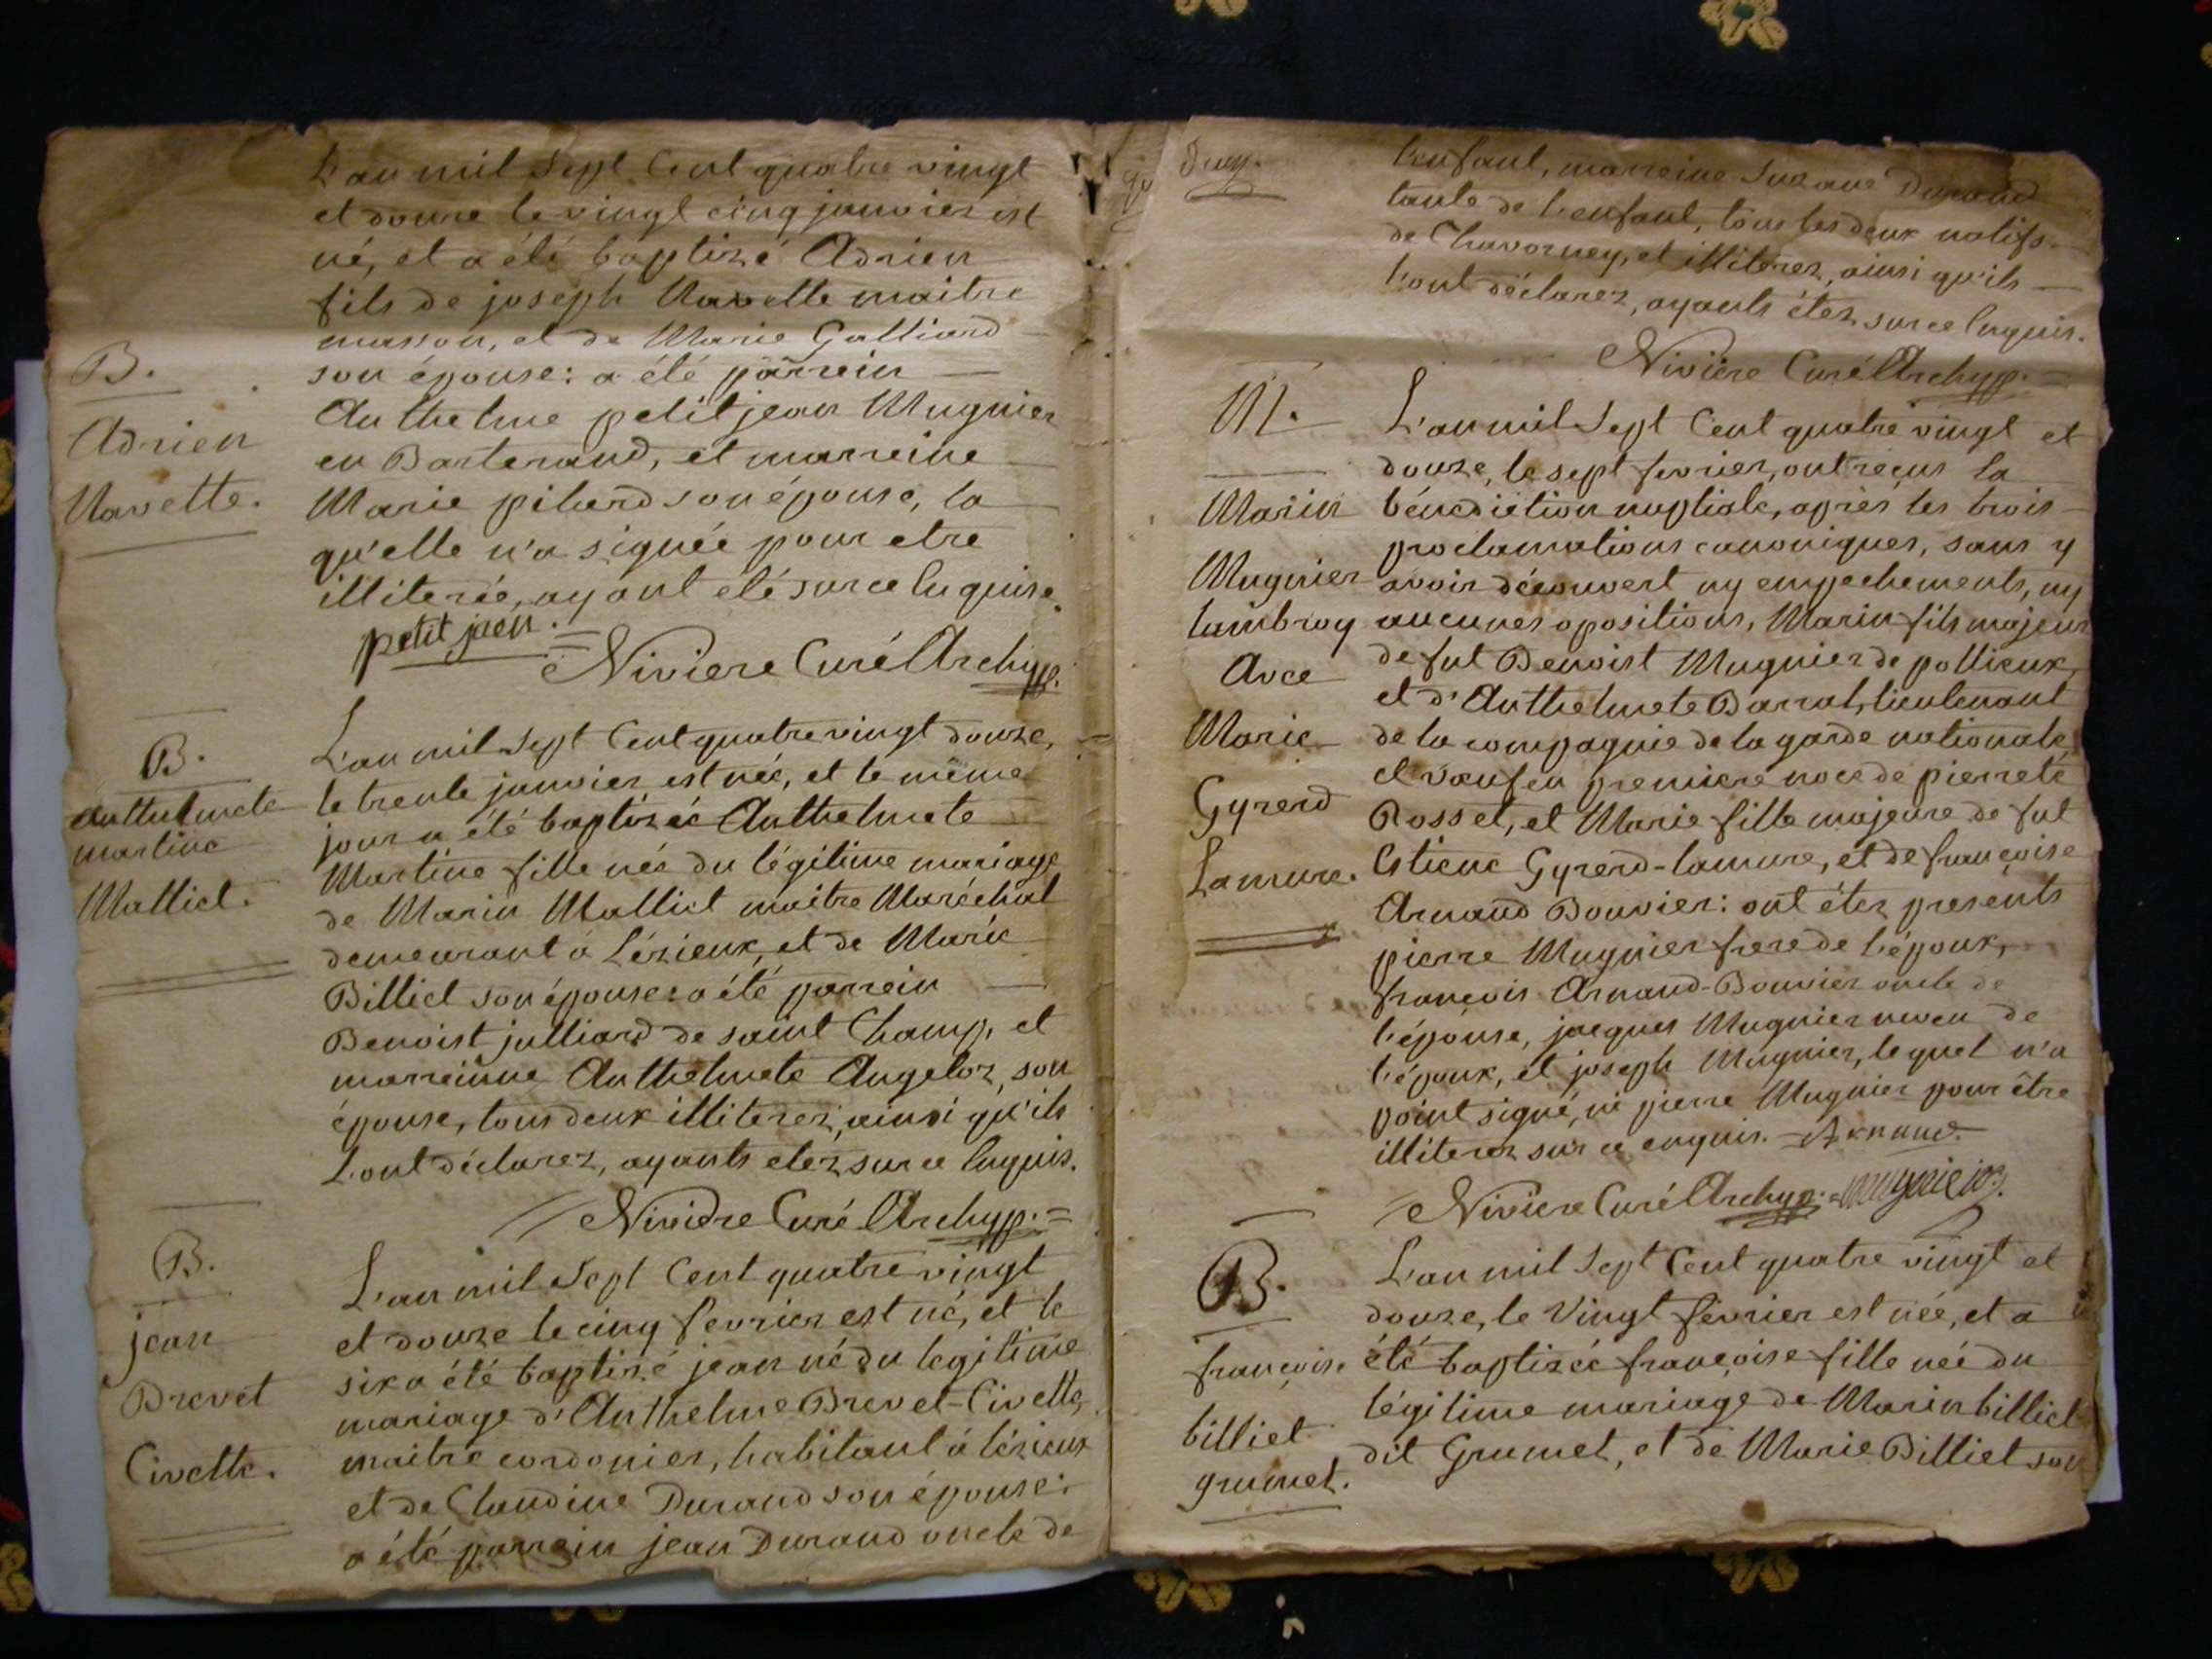 L'an mil Sept Cent quatre vingt
et douze le vingt cinq janvier est
né, et a été baptizé Adrien
fils de joseph Navette maitre
masson, et de Marie Galliard
son épouse: a été parrein
B.
Adrien
Navette.
Anthelme petitjean Mugnier
en Barterand, et marreine
Marie pilard son épouse, la
qu'elle n'a signée pour etre
illiterée, ayant été sur ce Enquise.
petit jean.
Niviere Curé Archyp.
B.
Anthelmete
martine
Malliet.
L'an mil Sept Cent quatre vingt douze,
le trente janvier est née, et le même
jour a été baptizée Anthelmete
Martine fille née du légitime mariage
de Marin Malliet maitre Maréchal
demeurant à Lézieux, et de Marie
Billiet son épouse: a été parrein
Benoist julliard de saint Champ, et
marreinne Anthelmete Angeloz, son
épouse, tous deux illiterez, ainsi qu'ils
L'ont déclarez, ayants etez sur ce Enquis.
Niviere Curé Archyp.
B.
jean
Brevet
Civette.
L'an mil Sept Cent quatre vingt
et douze le cinq fevrier est né, et le
six a été baptizé jean né du legitime
mariage d'Anthelme Brevet-Civette,
maitre cordonier, habitant à lézieux
et de Claudine Durand son épouse:
a été parrein jean Durand oncle de
l'enfant, marreine Suzane Durand
tante de l'enfant, tous les deux natifs
de Chavorney, et illiterez, ainsi qu'ils
l'ont déclarez, ayants étez sur ce Enquis.
Niviere Curé Archyp.
M.
Marin
Mugnier
Lambroy
Avec
Marie
Gyrerd
Lamure.
L'an mil Sept Cent quatre vingt et
douze, le sept fevrier, ont reçus la
bénédiction nuptiale, après les trois
proclamations canoniques, sans y
avoir découvert ny empechements, ny
aucunes opositions, Marin fils majeur
de fut Benoist Mugnier de pollieux,
et d'Anthelmete Barrat, lieutenant
de la compagnie de la garde nationale,
et vœuf en premiere noce de pierrete
Rosset, et Marie fille majeure de fut
Estiene Gyrerd-lamure, et de françoise
Arnaud Bouvier: ont étez presents
pierre Mugnier frere de l'époux,
françois Arnaud-Bouvier oncle de
l'épouse, jacques Mugnier neveu de
l'époux, et joseph Mugnier, lequel n'a
point signé, ni pierre Mugnier pour être
illiterez sur ce enquis. Arnaud
Niviere Curé Archyp.
B.
françoise
billiet
grumet.
L'an mil Sept Cent quatre vingt et
douze, le Vingt février est née, et a
été baptizée françoise fille née du
légitime mariage de Marin billiet
dit Grumet, et de Marie Billiet son